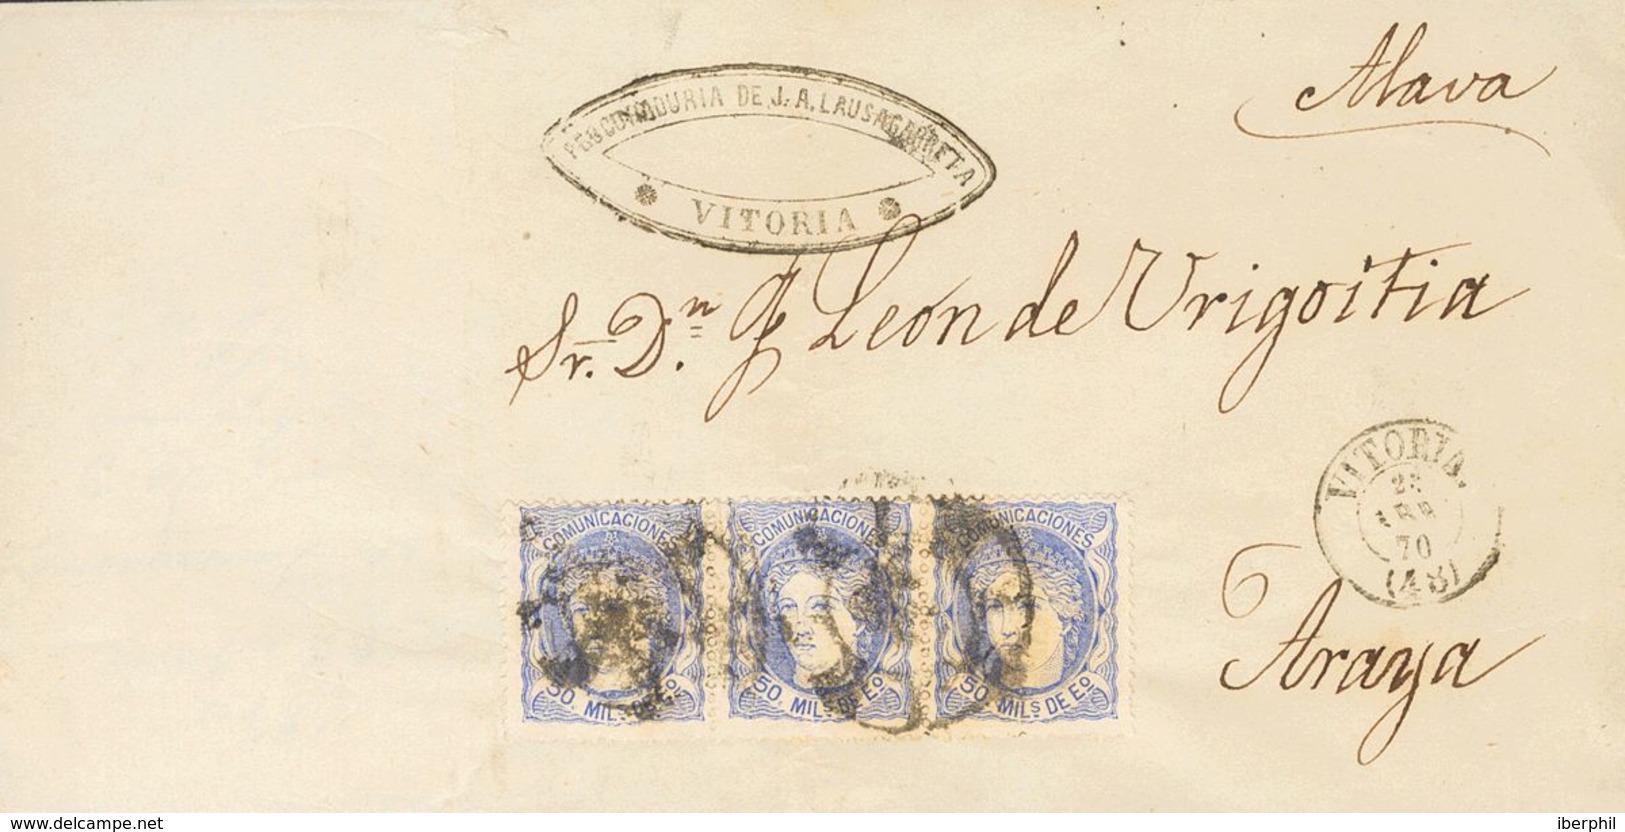 Alava
PROCURADURIA DE J. A. LAUSAGARRETA
VITORIA
Sr. D.n J. Leon de Urigoitia
VITORIA
70
(48)
Araya
COMUNICACIONES COMUNICACIONES COMUNICACIONES
50 MILS DE Eo 50 MILS DE Eo 50 MILS DE Eo
www.delcampe.net
iberphil